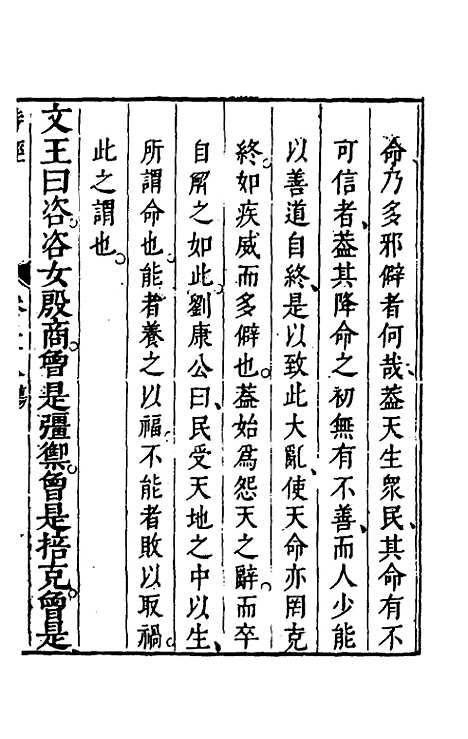 命乃多邪僻者何哉蓋天生衆民、其命有不
可信者、蓋其降命之初無有不善、而人少能
以善道自終、是以致此大亂、使天命亦罔克
終、如疾威而多僻也。蓋始爲怨天之辭、而卒
自解之如此。劉康公曰、民受天地之中以生、
所謂命也。能者養之以福、不能者敗以取禍。
此之謂也。
文王曰咨。咨女殷商。曾是彊禦。曾是掊克。曾是
詩經